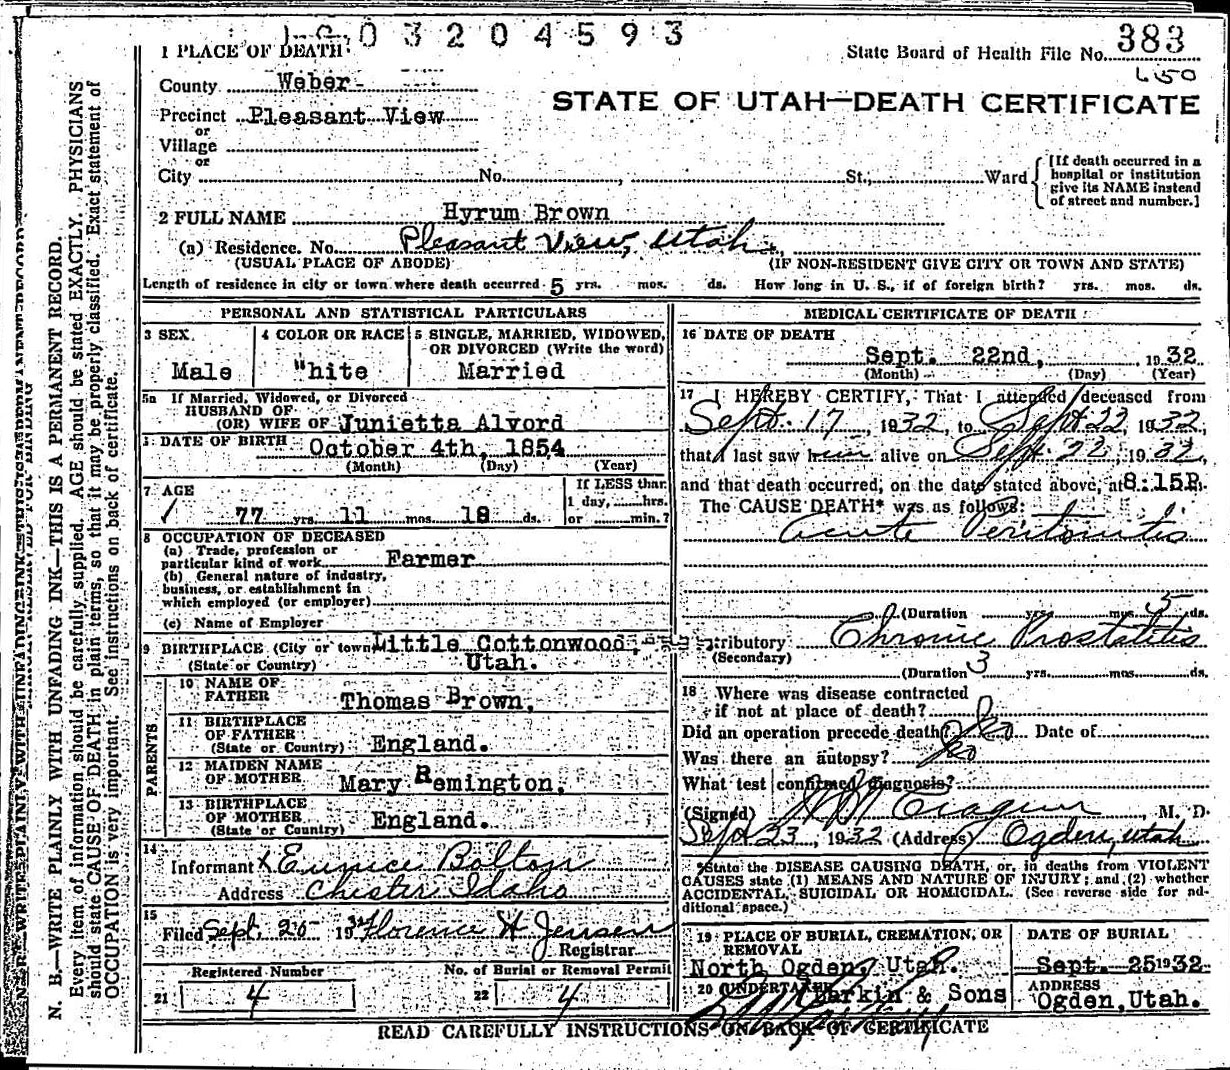 03204593
1 PLACE OF DEATH
State Board of Health File No. 383
County Weber
650
STATE OF UTAH—DEATH CERTIFICATE
Precinct Pleasant View
or
Village
or
City No. , St.; Ward
[If death occurred in a
hospital or institution
give its NAME instead
of street and number.]
2 FULL NAME Hyrum Brown
(a) Residence. No. Pleasant View, Utah.
(USUAL PLACE OF ABODE) (IF NON-RESIDENT GIVE CITY OR TOWN AND STATE)
Length of residence in city or town where death occurred 5 yrs. mos. ds. How long in U. S., if of foreign birth? yrs. mos. ds.
PERSONAL AND STATISTICAL PARTICULARS
3 SEX
Male
4 COLOR OR RACE
White
5 SINGLE, MARRIED, WIDOWED,
OR DIVORCED (Write the word)
Married
5a If Married, Widowed, or Divorced
HUSBAND OF
(OR) WIFE OF Junietta Alvord
DATE OF BIRTH October 4th, 1854
(Month) (Day) (Year)
7 AGE
77 yrs. 11 mos. 18 ds.
If LESS than
1 day, hrs.
or min.?
8 OCCUPATION OF DECEASED
(a) Trade, profession or
particular kind of work Farmer
(b) General nature of industry,
business, or establishment in
which employed (or employer)
(c) Name of Employer
9 BIRTHPLACE (City or town Little Cottonwood,
(State or Country) Utah.
PARENTS
10 NAME OF
FATHER Thomas Brown.
11 BIRTHPLACE
OF FATHER
(State or Country) England.
12 MAIDEN NAME
OF MOTHER Mary Remington.
13 BIRTHPLACE
OF MOTHER
(State or Country) England.
14
Informant Eunice Bolton
Address Chester Idaho
15
Filed Sept. 25 1932 Florence H Jensen
Registrar
Registered Number
21 4
No. of Burial or Removal Permit
22 4
MEDICAL CERTIFICATE OF DEATH
16 DATE OF DEATH
Sept. 22nd, 1932
(Month) (Day) (Year)
17 I HEREBY CERTIFY, That I attended deceased from
Sept. 17, 1932, to Sept 22, 1932,
that I last saw him alive on Sept. 22, 1932,
and that death occurred, on the date stated above, at 8:15P.
The CAUSE DEATH* was as follows:
Acute Peritonitis
(Duration yrs. mos. 5 ds.
Contributory Chronic Prostatitis
(Secondary)
(Duration 3 yrs. mos. ds.
18 Where was disease contracted
if not at place of death?
Did an operation precede death? No Date of
Was there an autopsy? No
What test confirmed diagnosis?
(Signed) , M. D.
Sept 23, 1932 (Address) Ogden, Utah
*State the DISEASE CAUSING DEATH, or, in deaths from VIOLENT
CAUSES state (1) MEANS AND NATURE OF INJURY; and (2) whether
ACCIDENTAL, SUICIDAL OR HOMICIDAL. (See reverse side for ad-
ditional space.)
19 PLACE OF BURIAL, CREMATION, OR
REMOVAL
North Ogden, Utah.
DATE OF BURIAL
Sept. 25 1932
20 UNDERTAKER
Larkin & Sons
ADDRESS
Ogden, Utah.
READ CAREFULLY INSTRUCTIONS ON BACK OF CERTIFICATE
N. B.—WRITE PLAINLY WITH UNFADING INK—THIS IS A PERMANENT RECORD.
Every item of information should be carefully supplied. AGE should be stated EXACTLY. PHYSICIANS
should state CAUSE OF DEATH in plain terms, so that it may be properly classified. Exact statement of
OCCUPATION is very important. See instructions on back of certificate.